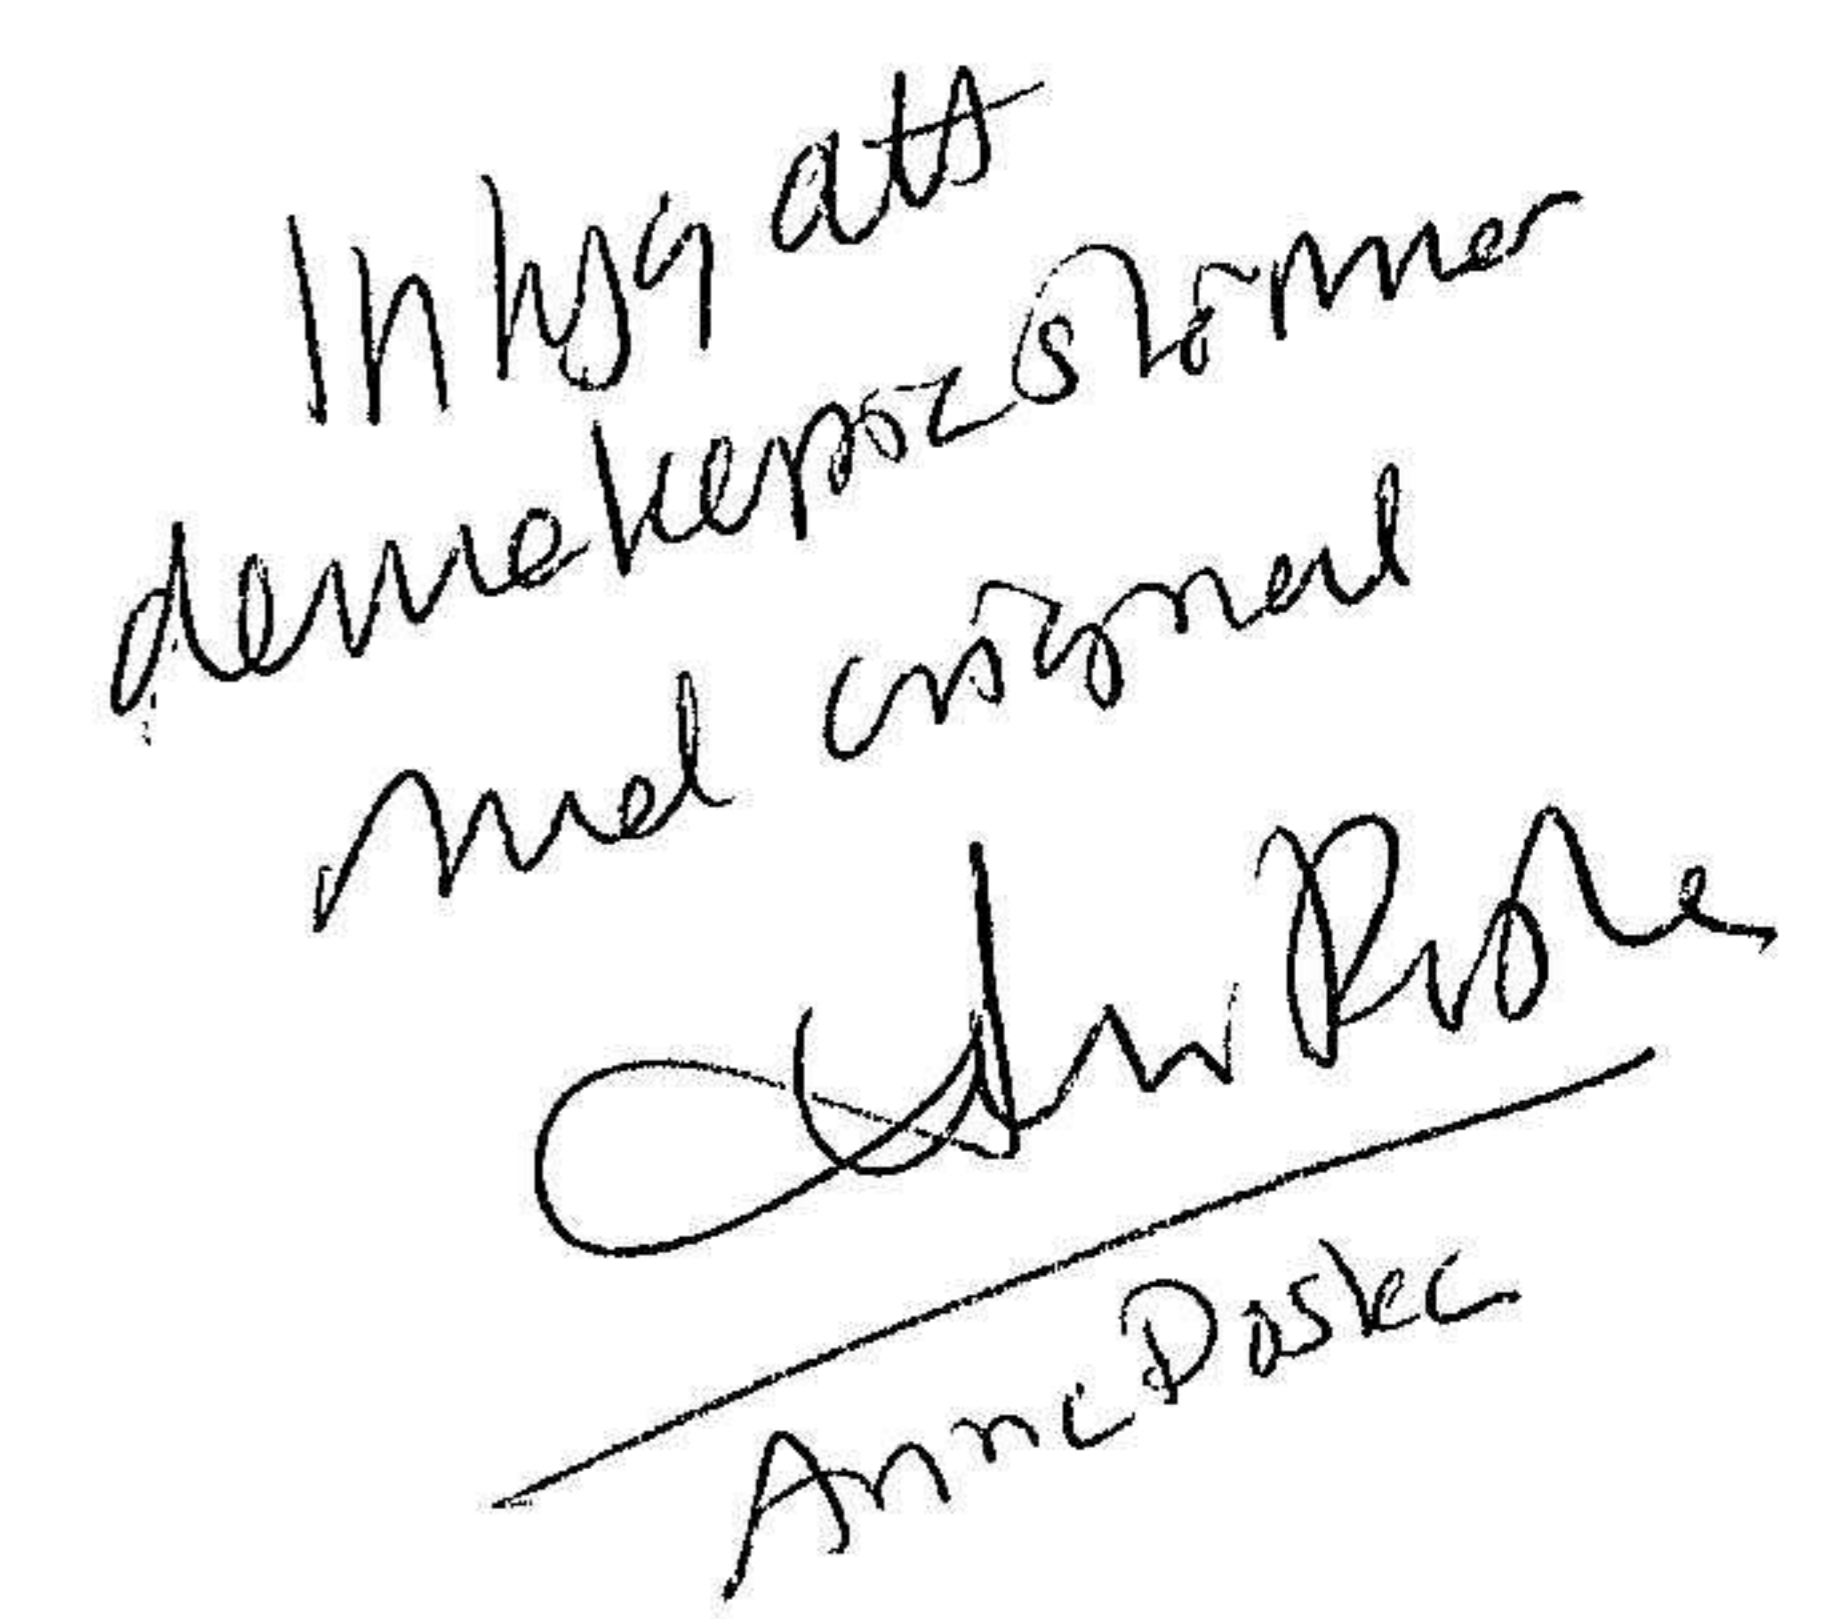 Intygas att
denna kopia stämmer
med original
Anne Paske